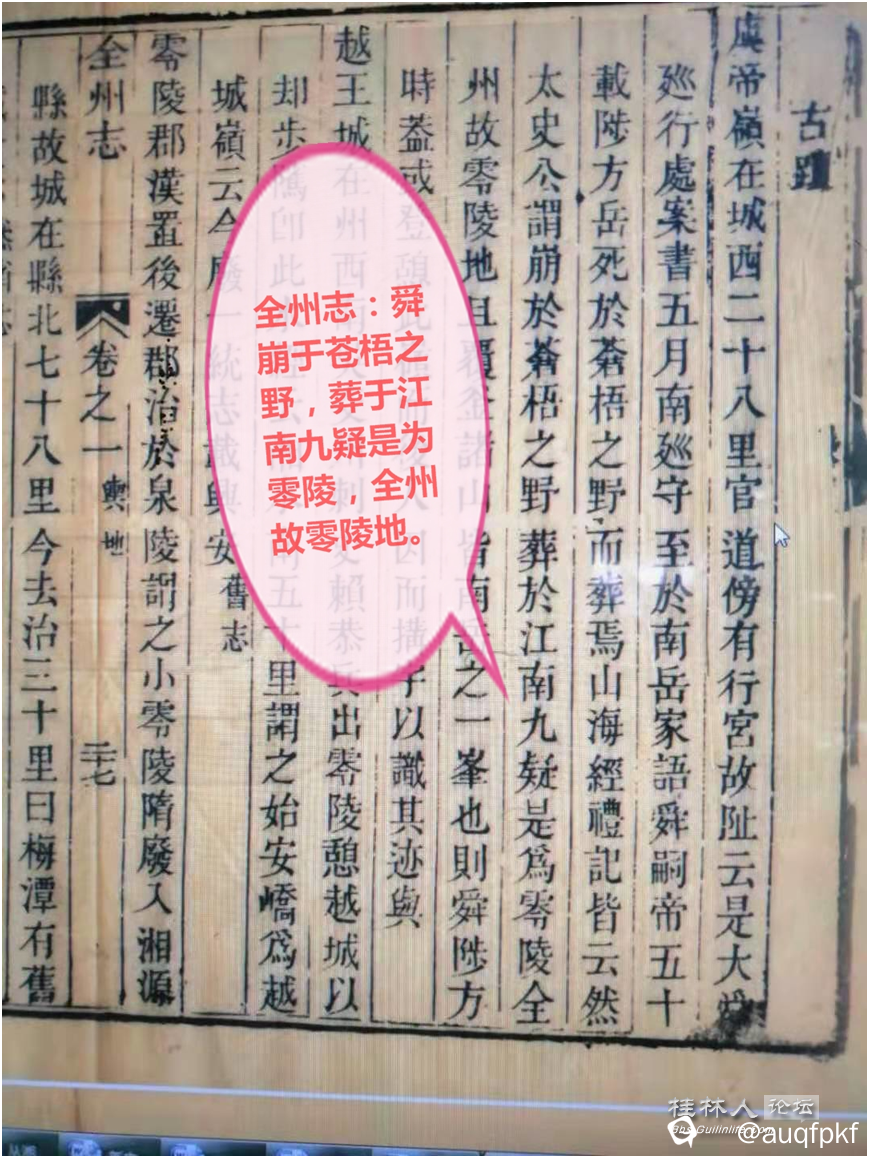 古蹟
虞帝嶺在城西二十八里官道傍有行宮故阯云是大舜
廵行處案書五月南廵守至於南岳家語舜嗣帝五十
載陟方岳死於蒼梧之野而葬焉山海經禮記皆云然
太史公謂崩於蒼梧之野葬於江南九疑是爲零陵全
州故零陵地且覆釜諸山皆南岳之一峯也則舜陟方
時蓋或登憩此因而搆亭以識其迹與
越王城在州西南賴恭兵出零陵憩越城以
却步隲卽此五十里謂之始安嶠爲越
城嶺云今廢一統志載興安舊志
零陵郡漢置後遷郡治於泉陵謂之小零陵隋廢入湘源
全州志
卷之一
輿地
二十七
縣故城在縣北七十八里今去治三十里曰梅潭有舊
全州志：舜
崩于苍梧之
野，葬于江
南九疑是为
零陵，全州
故零陵地。
桂林人论坛
bbs.Guilinlife.com
@auqfpkf